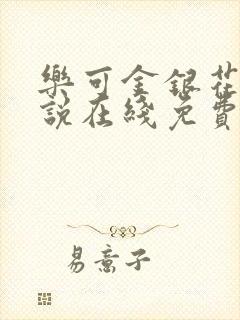 樂可金銀花
說在綫免費
易意子